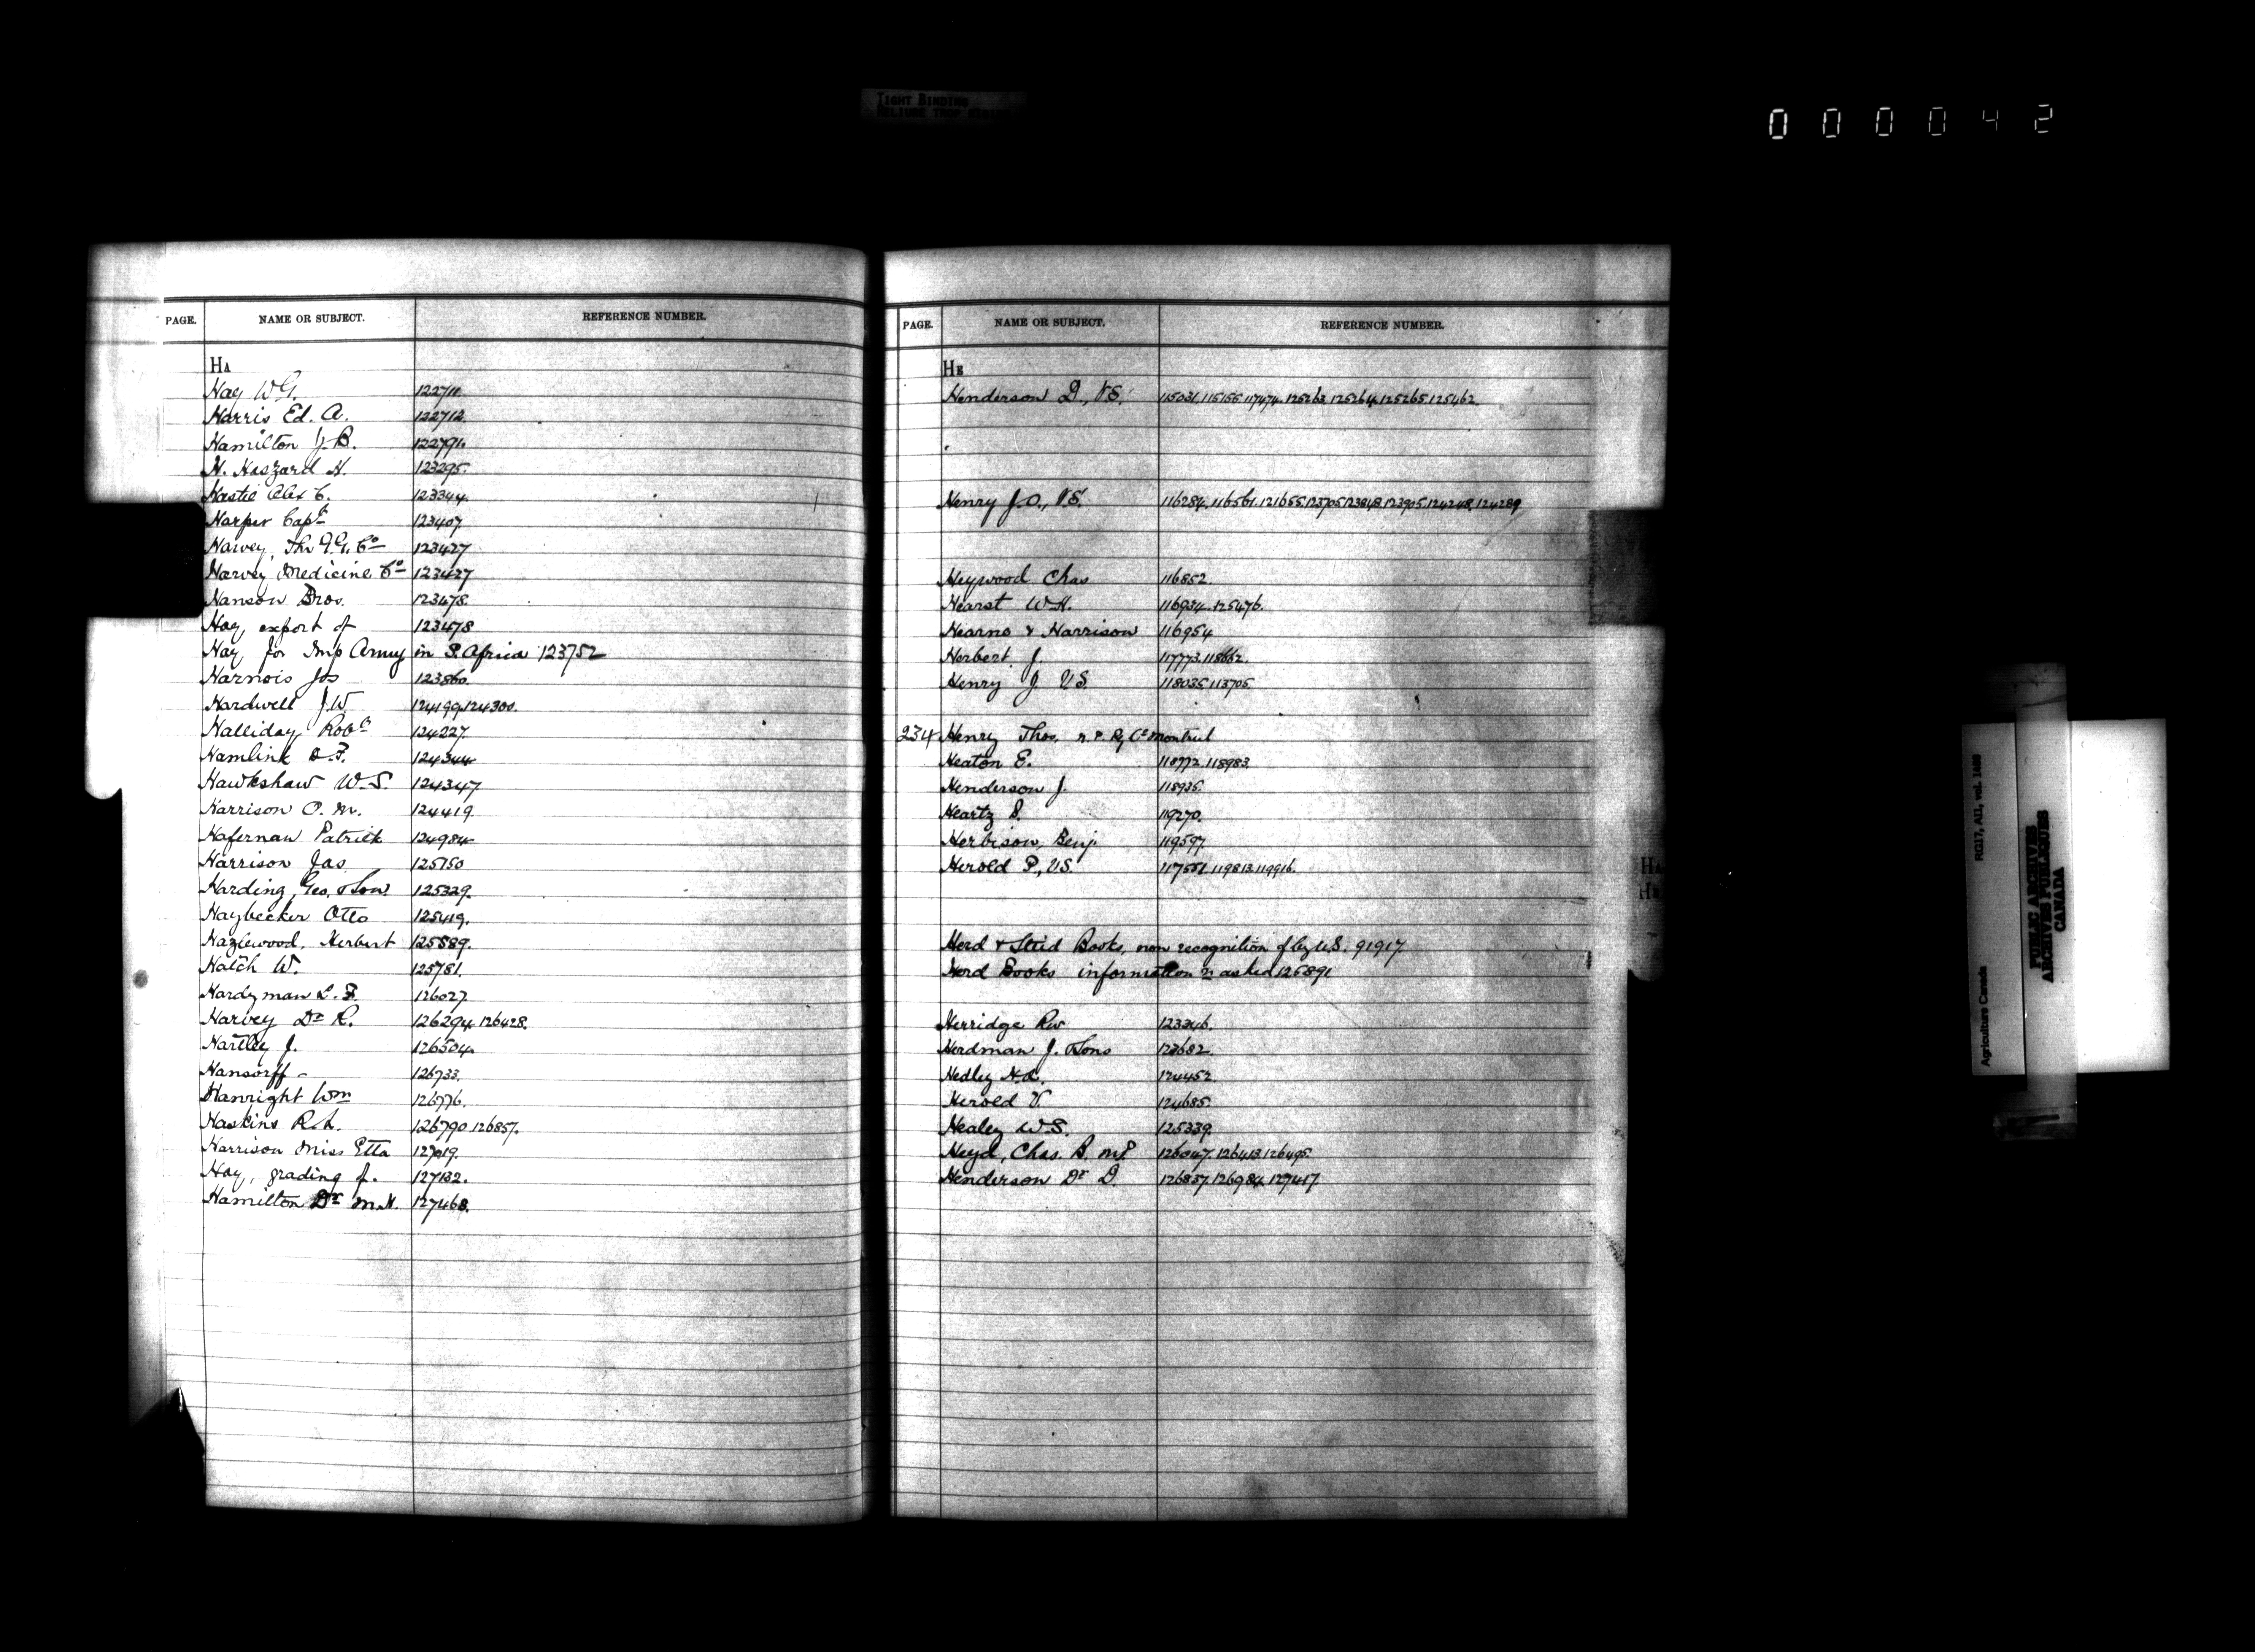 TIGHT BINDING
RELIURE TROP
000042
PAGE. NAME OR SUBJECT. REFERENCE NUMBER.
HA
Hay W.G. 122711.
Harris Ed. A. 122712.
Hamilton J.B. 122791.
H. Haszard H. 123295.
Hastie Alex C. 123344.
Harper Capt 123407
Harvey, Thr G.G. Co 123427
Harvey Medicine Co 123427
Hanson Bros. 123478.
Hay, export of 123478
Hay for Imp Army in S. Africa 123752
Harnois Jos 123860.
Hardwell J.W. 124199.124300.
Halliday Robt 124227.
Hamlink D.F. 124344
Hawkshaw W.S. 124347
Harrison O. M. 124419.
Hafernan Patrick 124984
Harrison Jas. 125150
Harding, Geo, & Son 125329.
Haybecker Otto 125419.
Hazlewood, Herbert 125589.
Hatch W. 125781.
Hardyman L. F. 126027.
Harvey Dr R. 126294.126428.
Hartley J. 126504.
Hansorff - 126733.
Hanright Wm 126776.
Haskins R.A. 126790.126857.
Harrison Miss Etta 127019.
Hay, grading of. 127132.
Hamilton Dr M.H. 127468.
PAGE. NAME OR SUBJECT. REFERENCE NUMBER.
HE
Henderson D., V.S. 115031.115155.117474.125263.125264.125265.125462.
Henry J.O., V.S. 116284.116561.121655.123705.123848.123905.124248.124289
Heywood Chas 116852.
Hearst W.H. 116934.125476.
Hearne & Harrison 116954
Herbert J. 117773.118662.
Henry J. V.S. 118035.113705.
234 Henry Thos. Montreal
Heaton E. 118772.118983.
Henderson J. 118935.
Heartz S. 119270.
Herbison, Benj 119597.
Herold P., V.S. 117551.119813.119916.
Herd & Stud Books, non recognition of by U.S. 91917.
Herd Books information re asked 125891
Herridge Rw 123246.
Herdman J. & Sons 123682.
Hedley H.L. 124452.
Herold V. 124685.
Healey W.S. 125339.
Heyd, Chas. B. M.P. 126047.126413.126495.
Henderson Dr D. 126837.126984.127417.
HA
HE
Agriculture Canada RG17, AI1, vol. 1488
PUBLIC ARCHIVES
ARCHIVES PUBLIQUES
CANADA